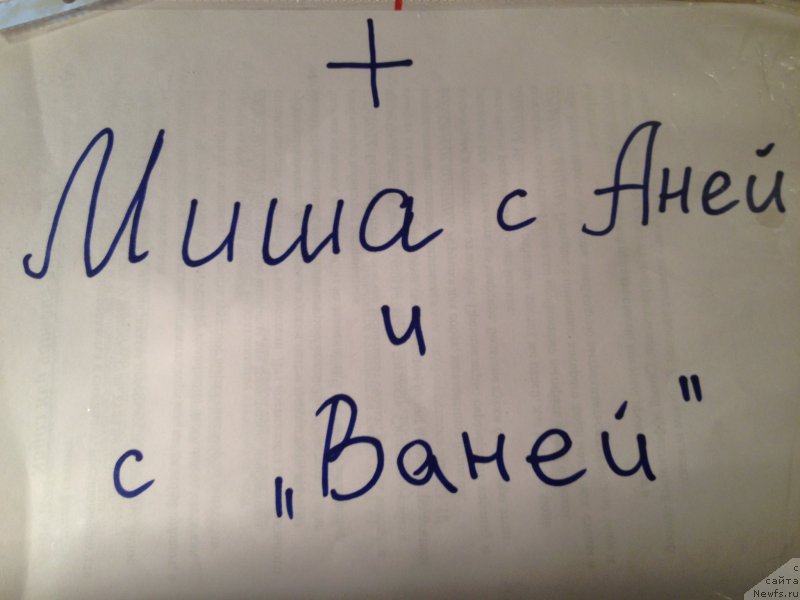 +
Миша с Аней
и
с „Ваней"
с
сайта
Newfs.ru